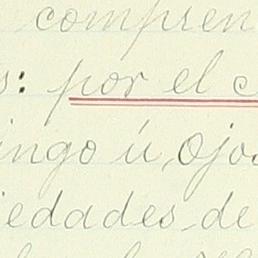 compren
s: por el c
ingo ú, Ojos
iedades de